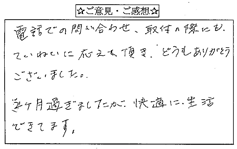 ☆ご意見・ご感想☆
電話での問い合わせ、取付の際にも、
ていねいに応えて頂き、どうもありがとう
ございました。
2ヶ月過ぎましたが、快適に生活
できてます。